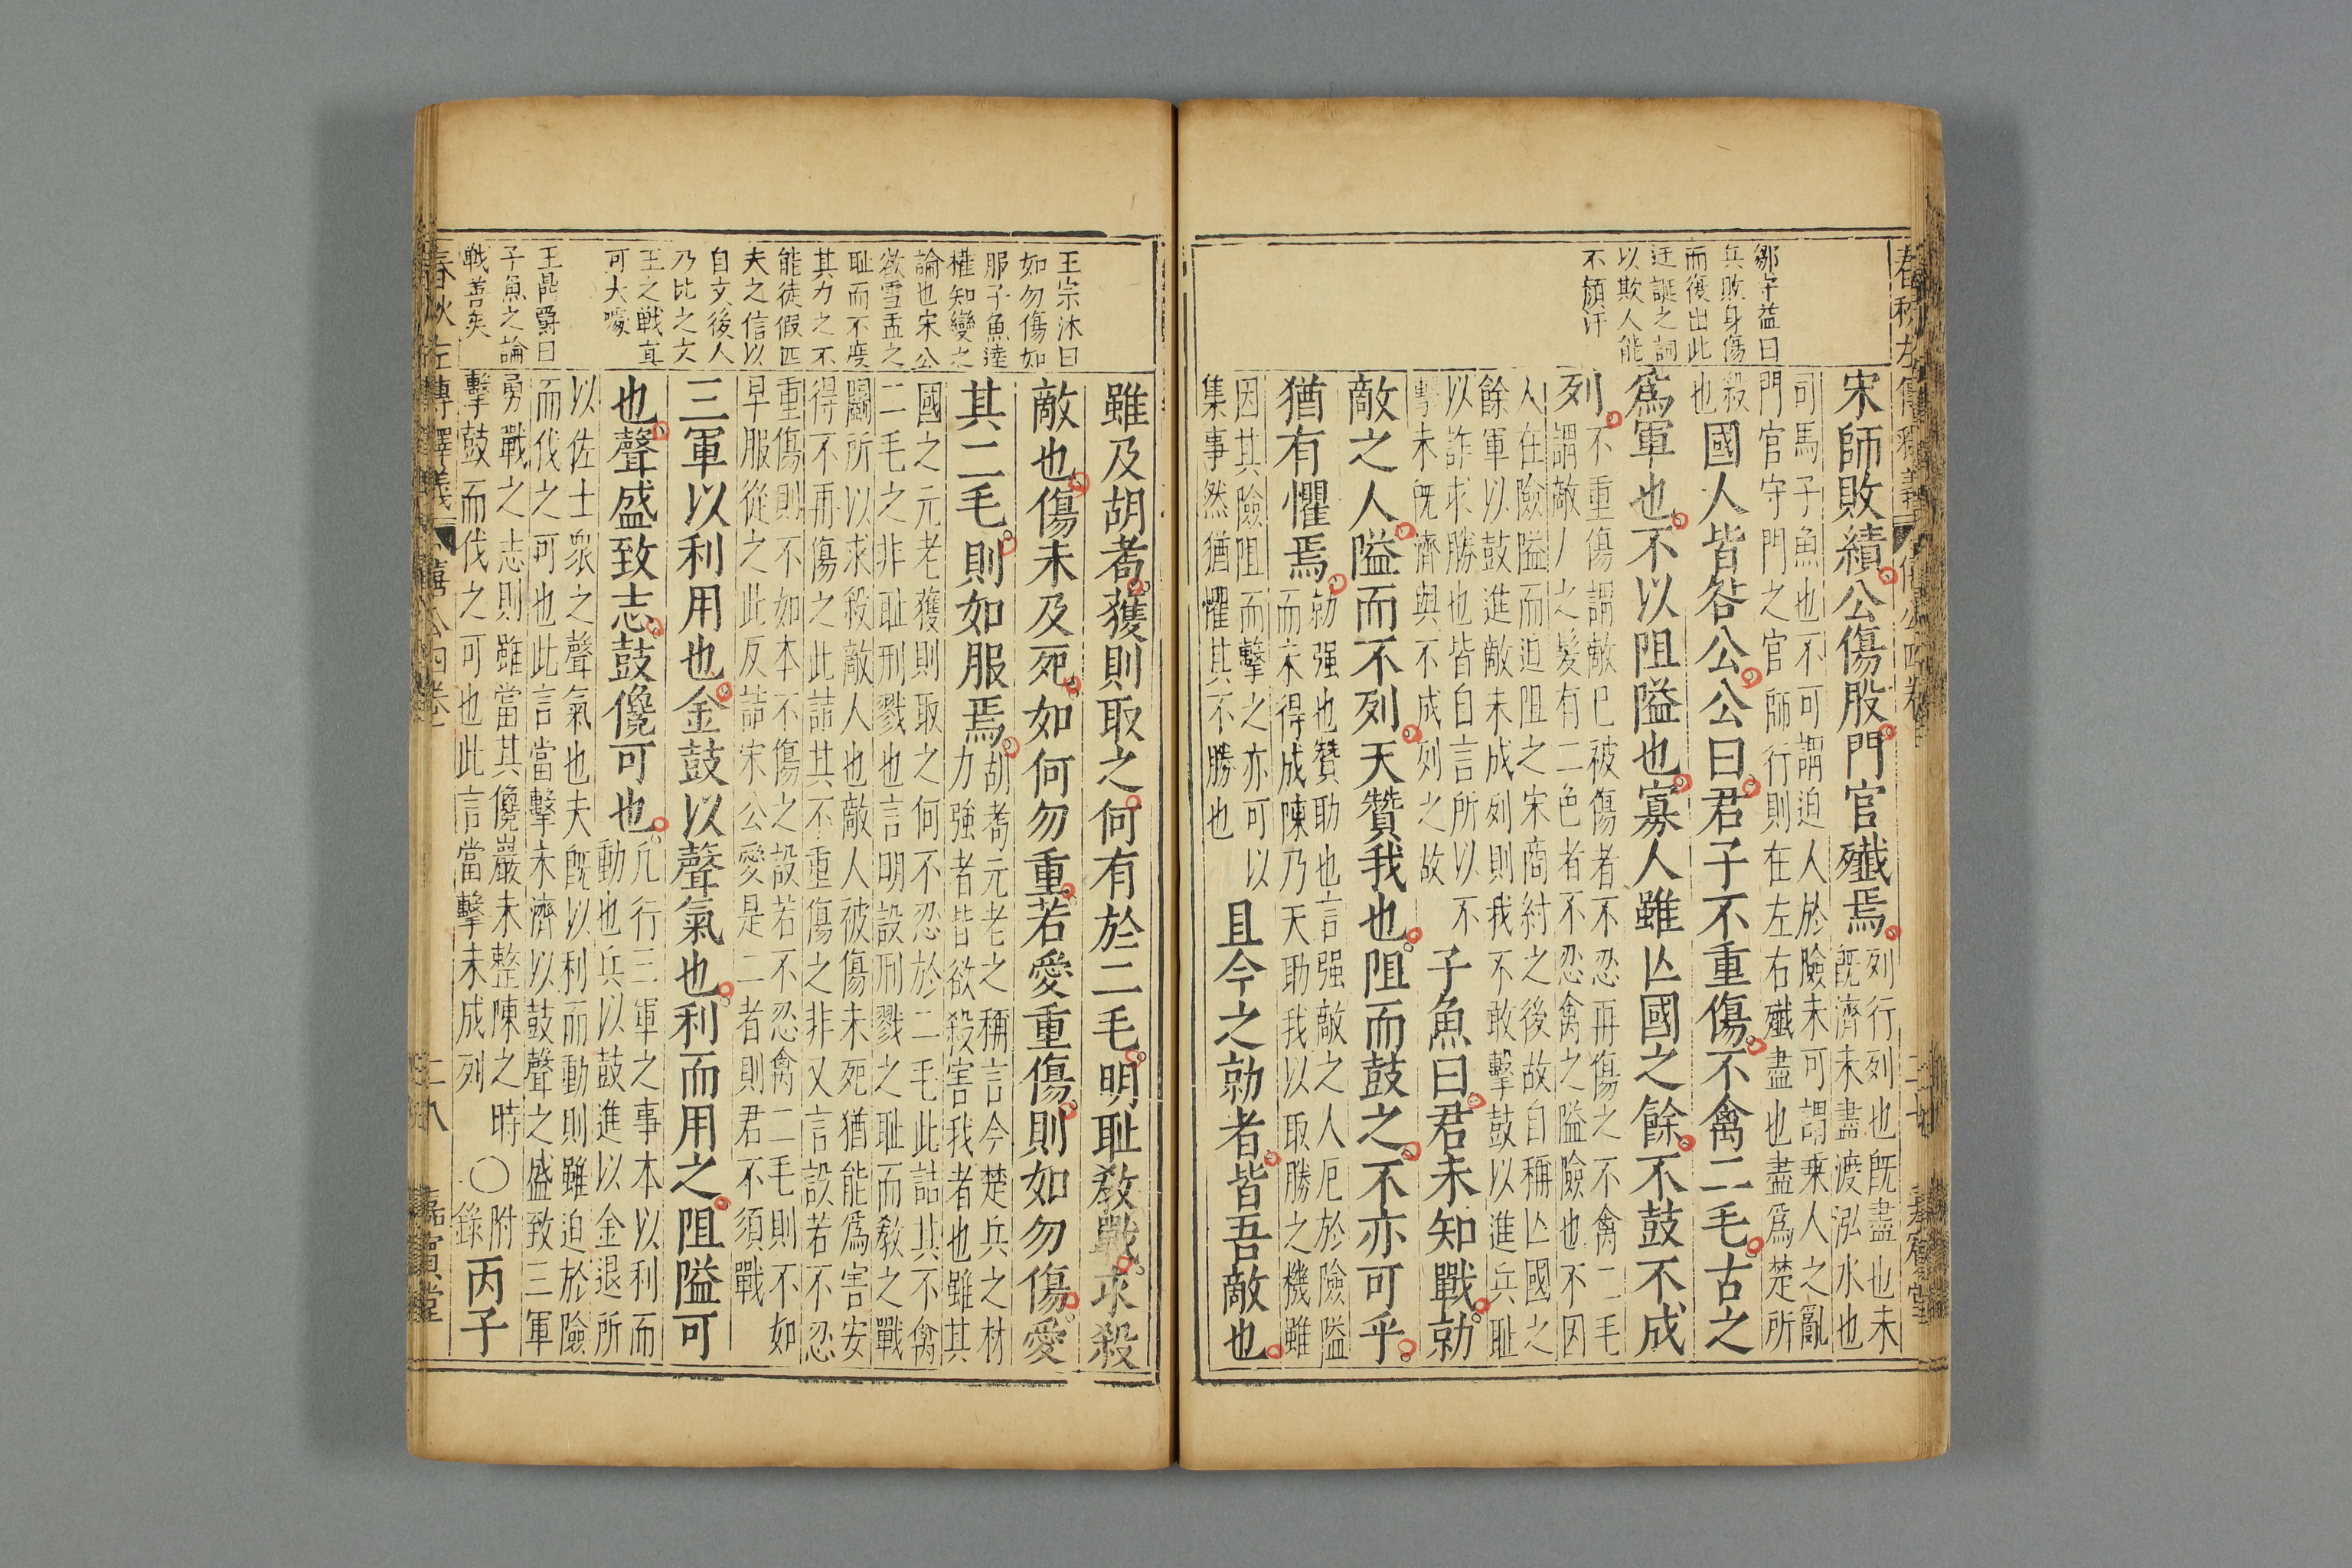 鄒守益曰
兵敗身傷
而復出此
迂誕之詞
以欺人能
不顏汗
宋師敗績公傷股門官殲焉列行列也旣盡也未
旣濟未盡渡泓水也
司馬子魚也不可謂迫人於險未可謂乗人之亂
門官守門之官師行則在左右殲盡也盡爲楚所
殺
也國人皆咎公公曰君子不重傷不禽二毛古之
爲軍也不以阻隘也寡人雖亾國之餘不鼓不成
列不重傷謂敵已被傷者不忍再傷之不禽二毛
謂敵人之髮有二色者不忍禽之隘險也不因
人在險隘而迫阻之宋商紂之後故自稱亾國之
餘軍以鼓進敵未成列則我不敢擊鼓以進兵耻
以詐求勝也皆自言所以不
擊未旣濟與不成列之故子魚曰君未知戰勍
敵之人隘而不列天贊我也阻而鼓之不亦可乎
猶有懼焉勍强也贊助也言强敵之人厄於險隘
而未得成陳乃天助我以取勝之機雖
因其險阻而擊之亦可以
集事然猶懼其不勝也且今之勍者皆吾敵也
王宗沐曰
如勿傷如
服子魚達
權知變之
論也宋公
欲雪盂之
耻而不度
其力之不
能徒假匹
夫之信以
自文後人
乃比之文
王之戰眞
可大噱
王鼎爵曰
子魚之論
戰善矣
雖及胡耇獲則取之何有於二毛明耻敎戰求殺
敵也傷未及死如何勿重若愛重傷則如勿傷愛
其二毛則如服焉胡耇元老之稱言今楚兵之材
力強者皆欲殺害我者也雖其
國之元老獲則取之何不忍於二毛此詰其不禽
二毛之非耻刑戮也言明設刑戮之耻而敎之戰
鬭所以求殺敵人也敵人被傷未死猶能爲害安
得不再傷之此詰其不重傷之非又言設若不忍
重傷則不如本不傷之設若不忍禽二毛則不如
早服從之此反詰宋公愛是二者則君不須戰
三軍以利用也金鼓以聲氣也利而用之阻隘可
也聲盛致志鼓儳可也凢行三軍之事本以利而
動也兵以鼓進以金退所
以佐士衆之聲氣也夫旣以利而動則雖迫於險
而伐之可也此言當擊未濟以鼓聲之盛致三軍
勇戰之志則雖當其儳巖未整陳之時
擊鼓而伐之可也此言當擊未成列〇附錄丙子
春秋左傳釋義
僖公四卷
二八
嘉賓堂